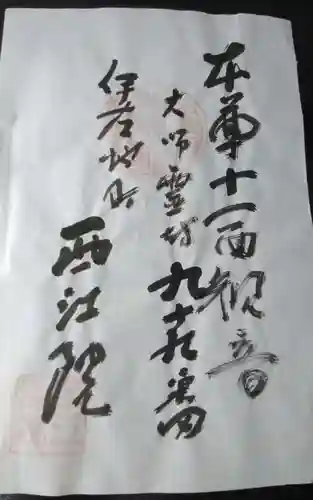 本尊十一面観音
大師霊場九十九番
伊左地町
西江院